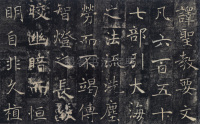 譯聖教要文
凡六百五十
七部引大海
之法流洗塵
勞而不竭傳
智燈之長焰
皎幽暗而恒
明自非久植